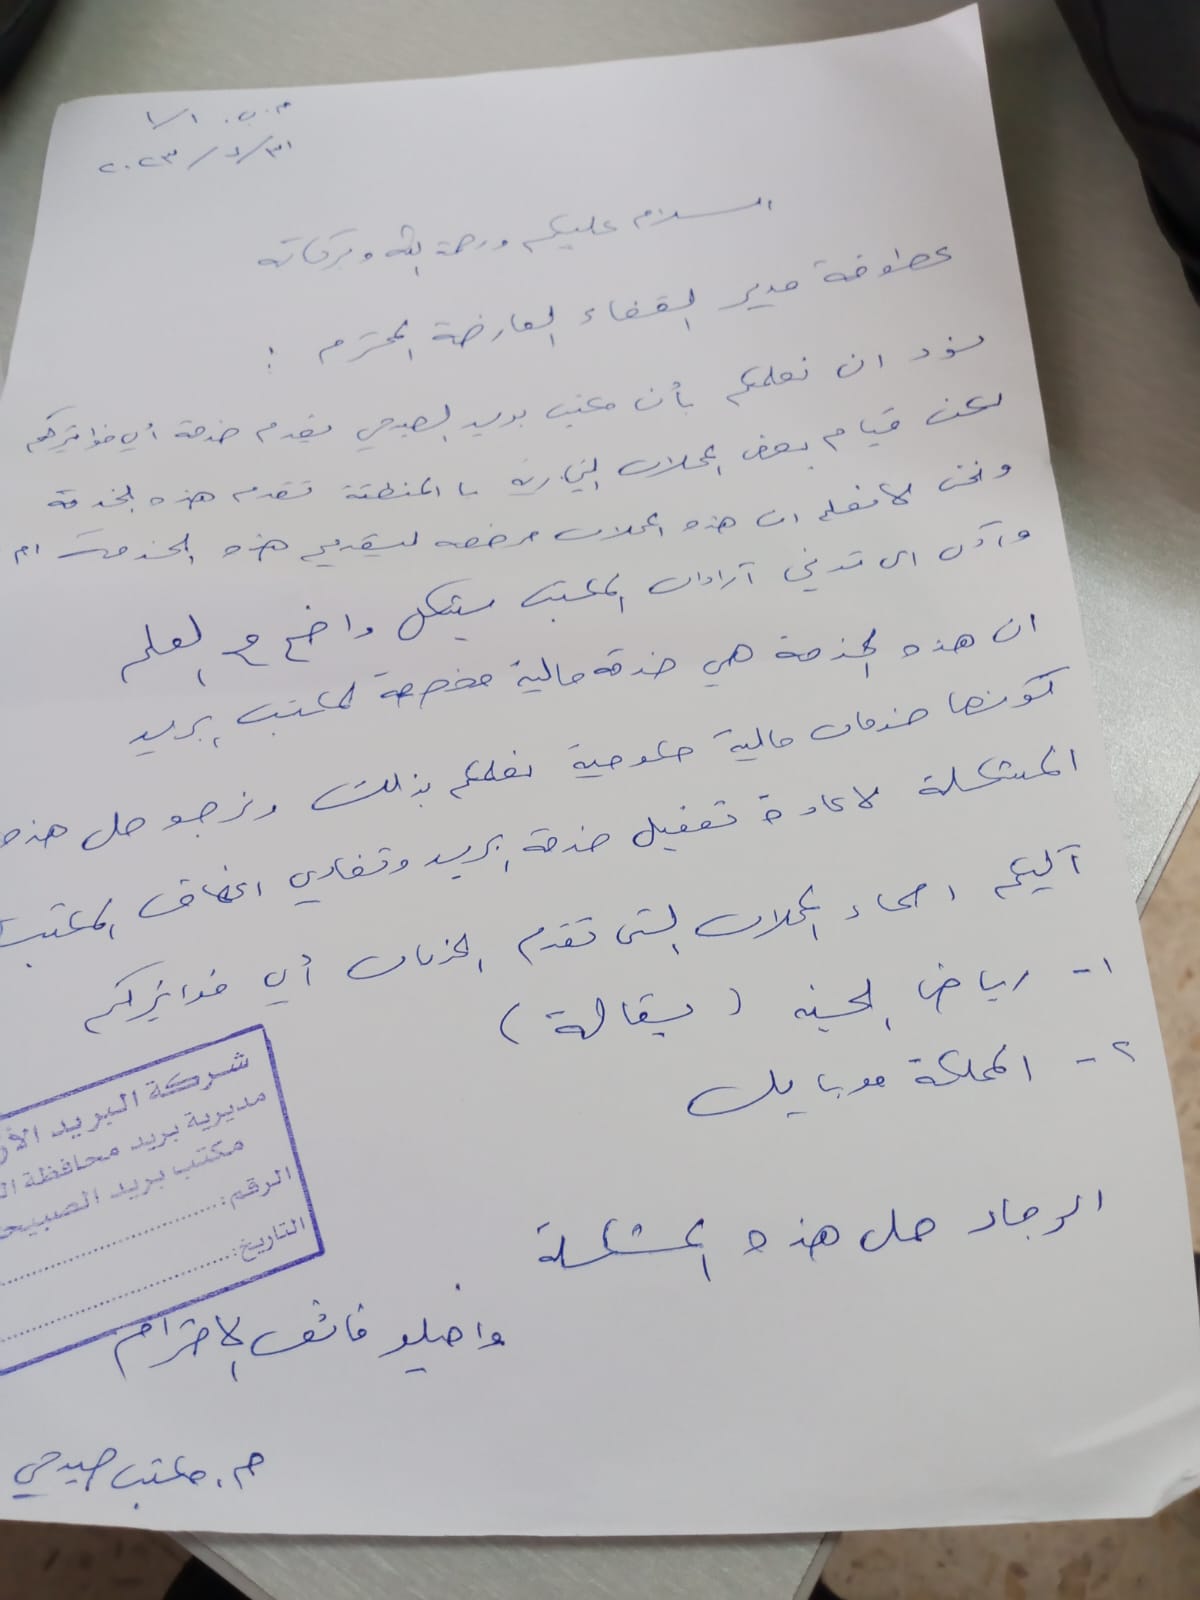 م.ب. ١/١
٢٠٢٣/١/٣١
السلام عليكم ورحمة الله وبركاته
عطوفة مدير القضاء العارضة المحترم :
نود ان نعلمكم بأن مكتب بريد الصبيحي يقدم خدمة أي فواتيركم
لكن قيام بعض المحلات التجارية بالمنطقة تقدم هذه الخدمة
ونحن لا نعلم ان هذه المحلات مرخصه لتقديم هذه الخدمة ام
وأدى الى تدني آرادات المكتب بشكل واضح مع العلم
ان هذه الخدمة هي خدمة مالية مخصصة لمكتب بريد
كونها خدمات مالية حكومية نعلمكم بذلك ونرجو حل هذه
المشكلة لاعادة تفعيل خدمة البريد وتفادي اخفاق المكتب
آليكم اسماء المحلات التي تقدم الخدمات أي فواتيركم
١- رياض الجنه ( بقالة )
٢- المملكة موبايل
الرجاء حل هذه المشكلة .
واقبلو فائق الاحترام
م. مكتب صبيحي
شركة البريد الأر
مديرية بريد محافظة ال
مكتب بريد الصبيح
الرقم:
التاريخ: